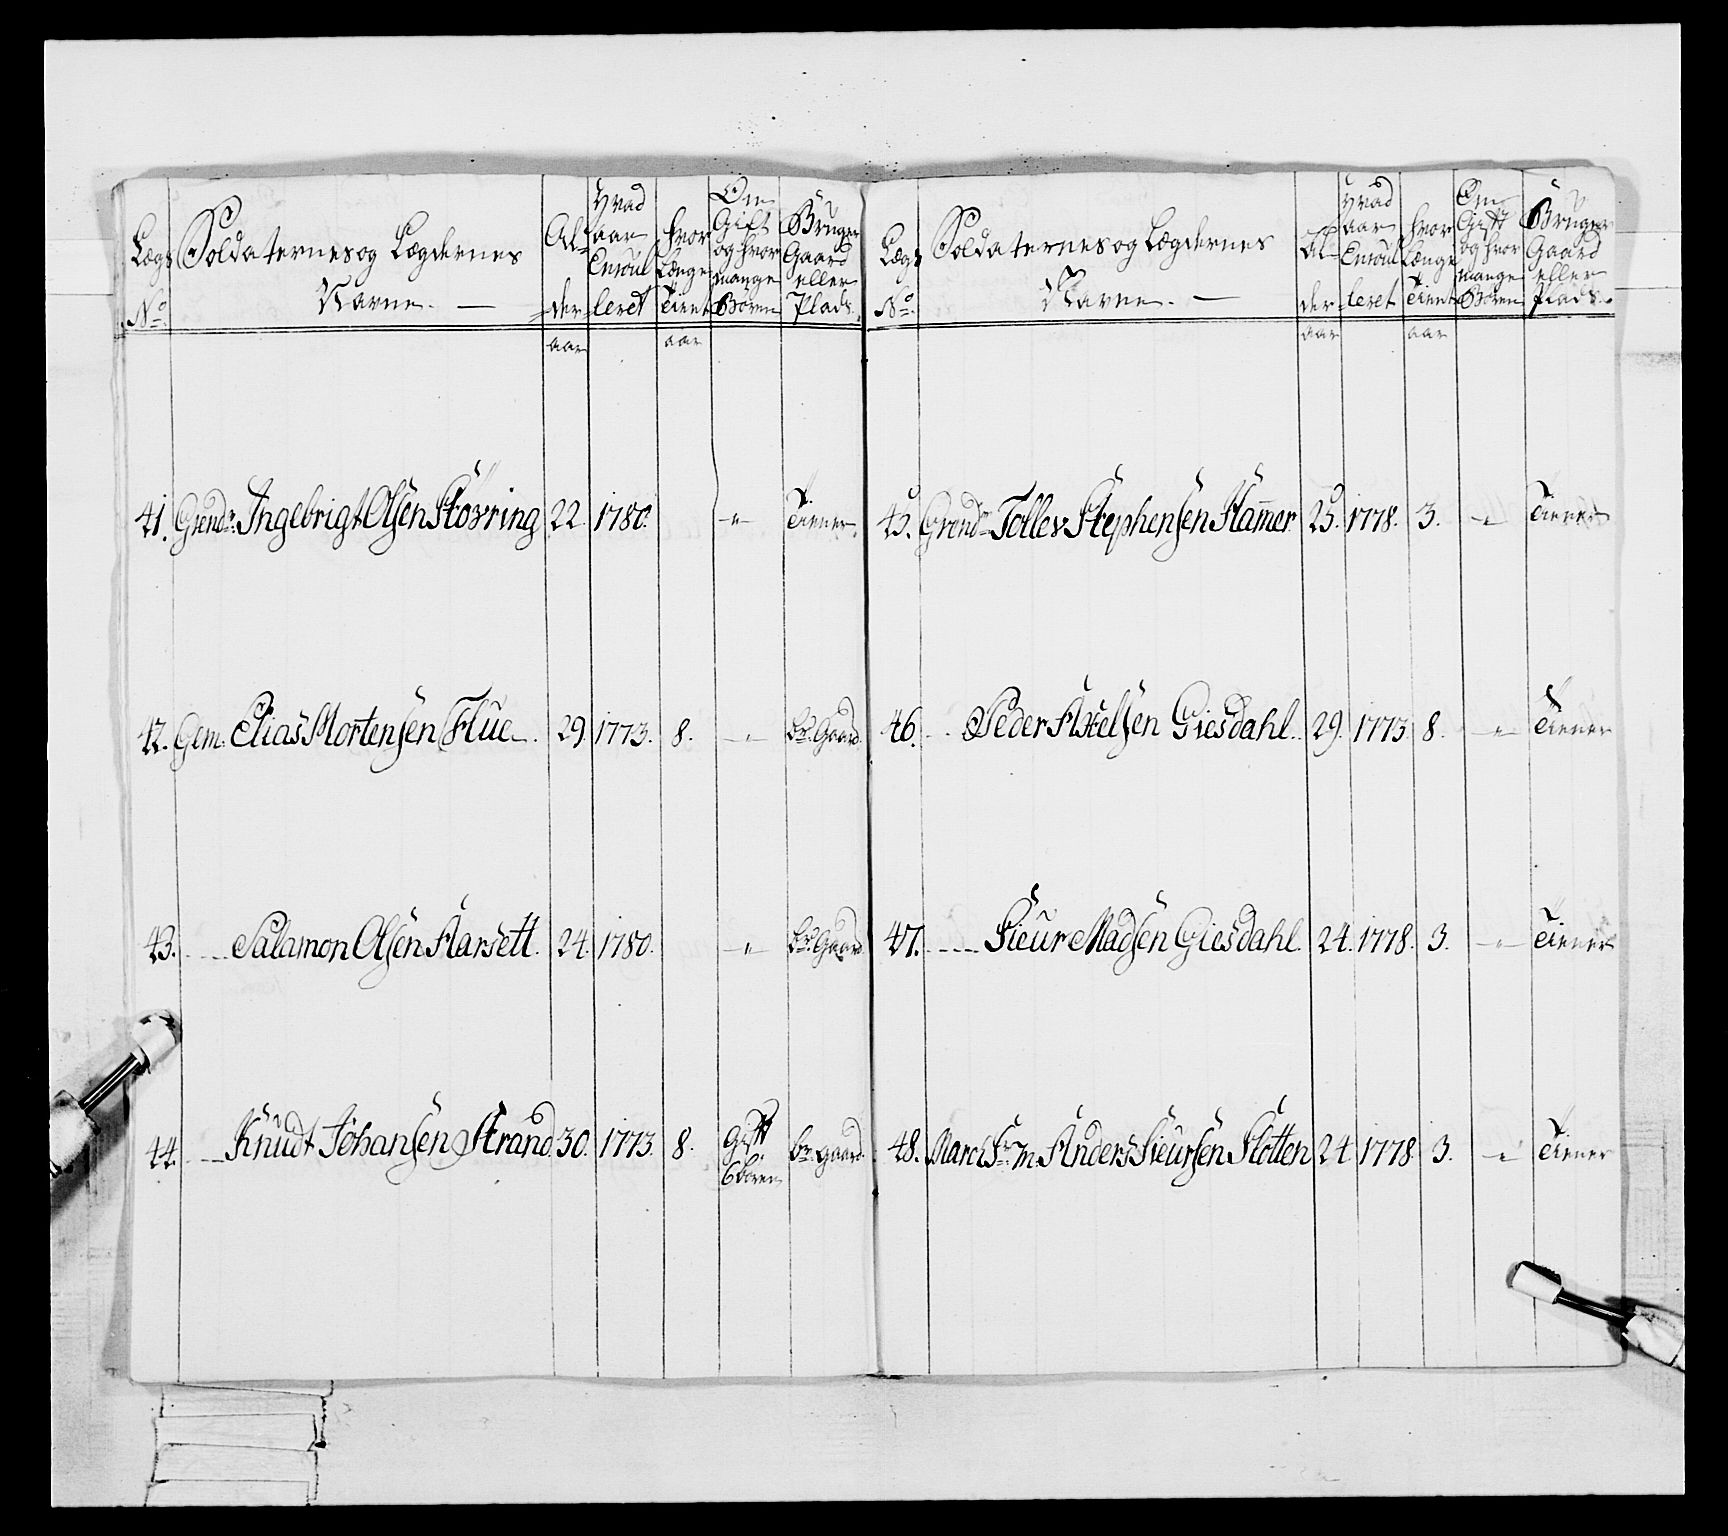 Lægs Nº
Soldaternes og Lægdernes Navne. —
Al=der
Hvad aar Enroulleret
hvor Længe Tient
Om Gift og hvor mange Børn
Bruger Gaard eller Plads.
aar
aar
41. Grendr. Ingebrigt Olsen Støvring 22. 1780. -"- Tiener.
42. Gem. Elias Mortensen Flue. 29. 1773. 8. -"- br. Gaard
43. - - Salamon Olsen Aarsett. 24. 1780. -"- br. Gaard
44. - - Knudt Johansen Strand 30. 1773. 8. Gift 6 børn br. gaard.
Lægs Nº
Soldaternes og Lægdernes Navne. —
Al=der
Hvad aar Enroulleret
hvor Længe Tient
Om Gift og hvor mange Børn
Bruger Gaard eller Plads.
aar
aar
45. Grendr. Tollev Stephensen Hamer. 25. 1778. 3. -"- Tiener
46. - - Peder Axelsen Giesdahl. 29. 1773. 8. -"- Tiener
47. - - Sieur Madsen Giesdahl 24. 1778. 3. -"- Tiener
48. Anders Sieursen Slotten 24. 1778 3. -"- Tiener